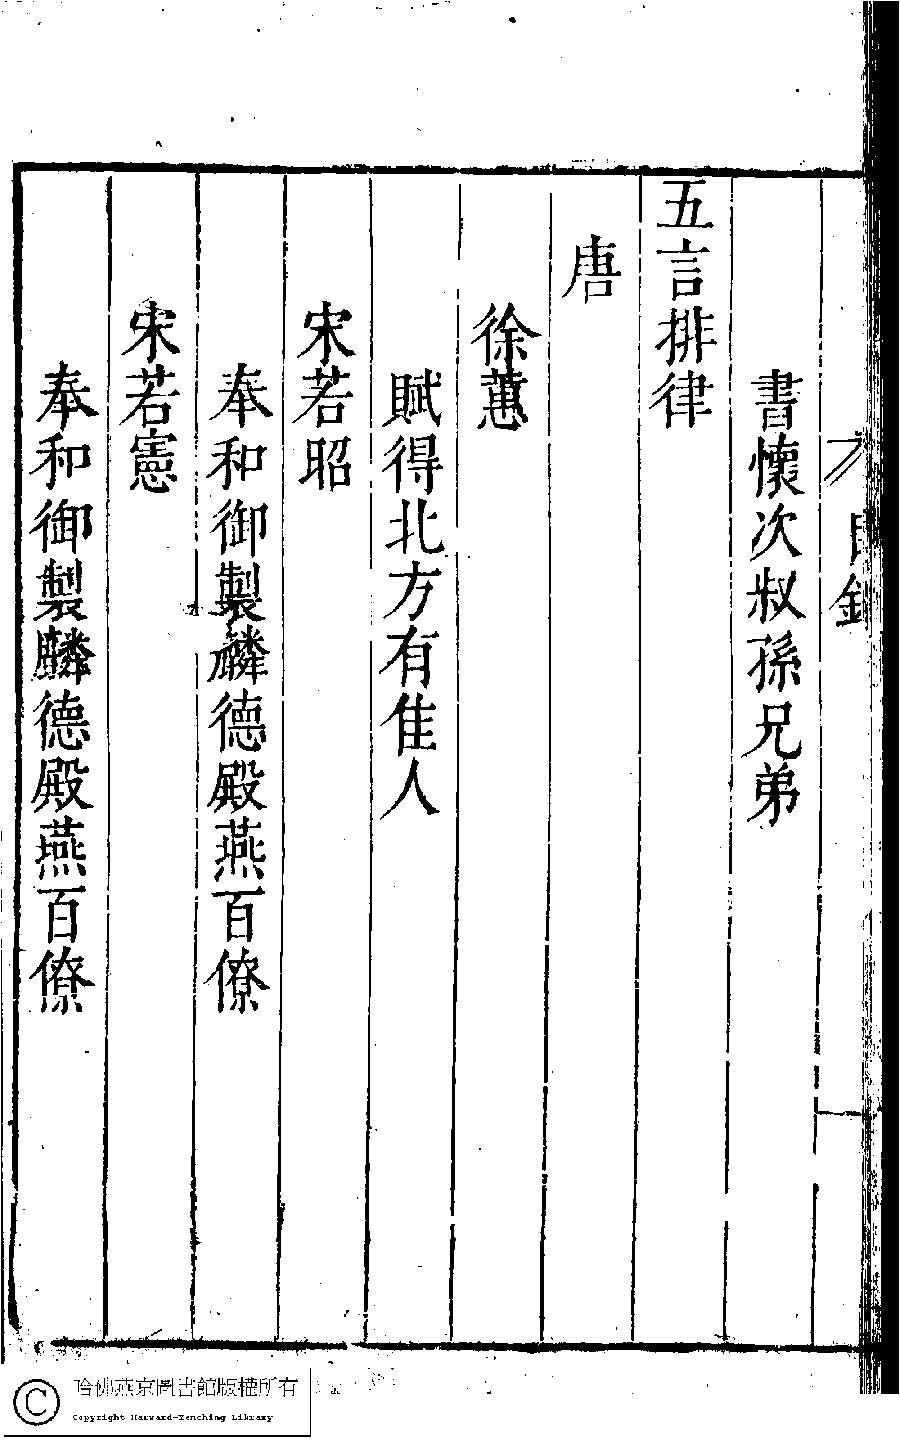 目錄
書懷次叔孫兄弟
五言排律
唐
徐蕙
賦得北方有佳人
宋若昭
奉和御製麟德殿燕百僚
宋若憲
奉和御製麟德殿燕百僚
哈佛燕京圖書館版權所有
Copyright Harvard-Yenching Library